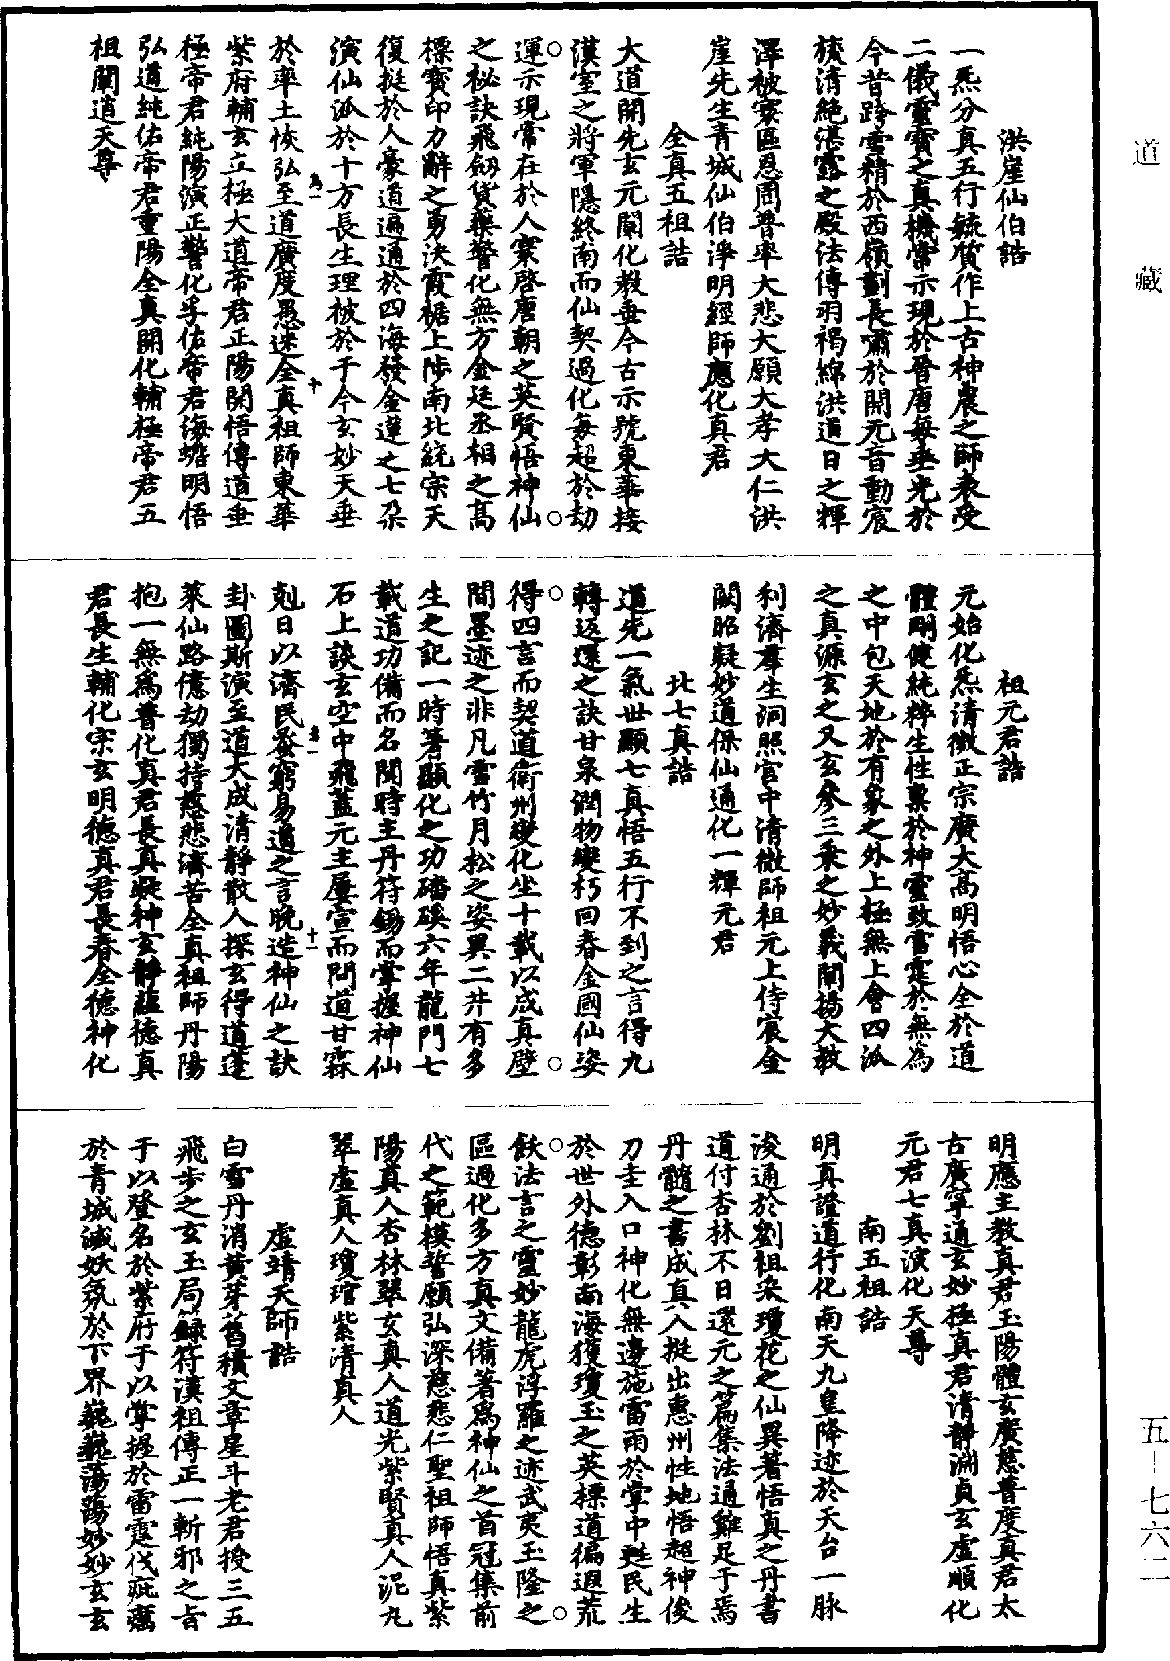 道藏
五—七六二
洪崖仙伯誥
一炁分真五行毓質作上古神農之師表受
二儀靈寶之真機常示現於晉唐每垂光於
今昔跨雪精於西嶺劃長嘯於開元音動宸
旒清絶湛露之殿法傳羽褐綿洪道日之輝
澤被寰區恩周普率大悲大願大孝大仁洪
崖先生青城仙伯淨明經師應化真君
全真五祖誥
大道開先玄元闡化教垂今古示號東華接
漢室之將軍隱終南而仙契過化每超於劫
運示現常在於人寰啓唐朝之英賢悟神仙
之祕訣飛劔貨藥警化無方金廷丞相之高
標寶印力辭之勇決霞裾上陟南北統宗天
復挺於人豪道遍通於四海發金蓮之七朶
演仙派於十方長生理被於于今玄妙天垂
於率土恢弘至道廣度愚迷全真祖師東華
紫府輔玄立極大道帝君正陽開悟傳道垂
極帝君純陽演正警化孚佑帝君海蟾明悟
弘道純佑帝君重陽全真開化輔極帝君五
祖闡道天尊
祖元君誥
元始化炁清微正宗廣大高明悟心全於道
體剛健純粹生性稟於神靈致雷霆於無為
之中包天地於有象之外上極無上會四派
之真源玄之又玄參三乘之妙義闡揚大教
利濟羣生洞照宮中清微師祖元上侍宸金
闕昭凝妙道保仙通化一輝元君
北七真誥
道先一氣世顯七真悟五行不到之言得九
轉返還之訣甘泉潤物變朽回春金國仙姿
得四言而契道衛州變化坐十載以成真壁
間墨迹之非凡雪竹月松之姿異二井有多
生之記一時著顯化之功磻磎六年龍門七
載道功備而名聞時主丹符錫而掌握神仙
石上談玄空中飛蓋元主屢宣而問道甘霖
剋日以濟民發窮易道之言晚造神仙之訣
卦圖斯演至道大成清靜散人探玄得道蓬
萊仙路億劫獨持慈悲濟苦全真祖師丹陽
抱一無為普化真君長真凝神玄靜蘊德真
君長生輔化宗玄明德真君長春全德神化
明應主教真君玉陽體玄廣慈普度真君太
古廣寧通玄妙極真君清靜淵貞玄虛順化
元君七真演化天尊
南五祖誥
明真證道行化南天九皇降迹於天台一脉
浚通於劉祖染瓊花之仙異著悟真之丹書
道付杏林不日還元之篇集法通雞足于焉
丹髓之書成真人挺出惠州性地悟超神俊
刀圭入口神化無邊施雷雨於掌中甦民生
於世外德彰南海獲瓊玉之英標道徧遐荒
飫法言之靈妙龍虎浮羅之迹武夷玉隆之
區過化多方真文備著為神仙之首冠集前
代之範模誓願弘深慈悲仁聖祖師悟真紫
陽真人杏林翠玄真人道光紫賢真人泥丸
翠虛真人瓊琯紫清真人
虛靖天師誥
白雪丹消黄芽舊積文章星斗老君授三五
飛步之玄玉局籙符漢祖傳正一斬邪之旨
于以登名於紫府于以掌握於雷霆伐疵癘
於青城滅妖氛於下界巍巍蕩蕩妙妙玄玄